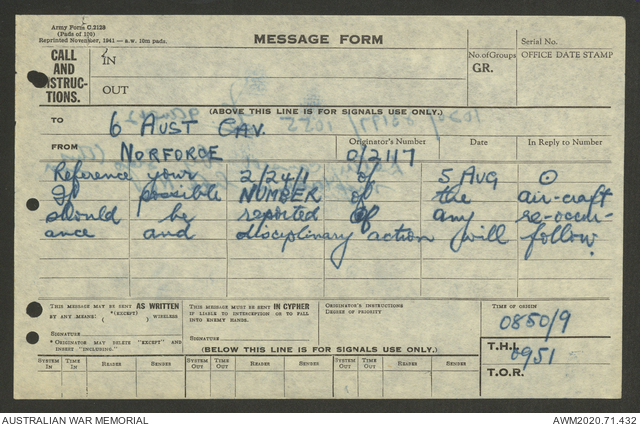 Army Form C.2128
(Pads of 100)
Reprinted November, 1941 — a.w. 10m pads.
MESSAGE FORM
Serial No.
CALL
AND
INSTRUC-
TIONS.
IN
OUT
No. of Groups
GR.
OFFICE DATE STAMP
(ABOVE THIS LINE IS FOR SIGNALS USE ONLY.)
TO 6 AUST CAV.
FROM NORFORCE
Originator's Number
0/2117
Date
In Reply to Number
Reference your 2/24/1 of 5 AUG ⊙
If possible NUMBER of the air-craft
should be reported of any re-occur-
ance and disciplinary action will follow.
THIS MESSAGE MAY BE SENT AS WRITTEN
BY ANY MEANS: ( (EXCEPT) ) WIRELESS
SIGNATURE
* ORIGINATOR MAY DELETE "EXCEPT" AND
INSERT "INCLUDING."
THIS MESSAGE MUST BE SENT IN CYPHER
IF LIABLE TO INTERCEPTION OR TO FALL
INTO ENEMY HANDS.
SIGNATURE
ORIGINATOR'S INSTRUCTIONS
DEGREE OF PRIORITY
TIME OF ORIGIN
0850/9
T.H.I. 0951
T.O.R.
(BELOW THIS LINE IS FOR SIGNALS USE ONLY.)
SYSTEM IN TIME IN READER SENDER SYSTEM OUT TIME OUT READER SENDER SYSTEM OUT TIME OUT READER SENDER
AUSTRALIAN WAR MEMORIAL
AWM2020.71.432